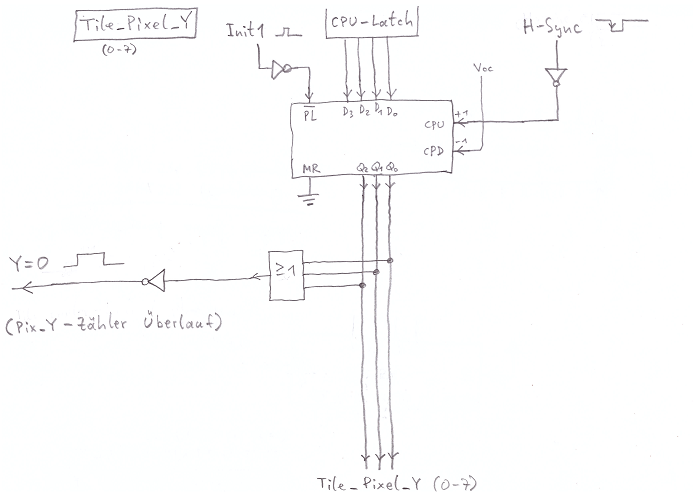 Tile_Pixel_Y
(0-7)
Init1
CPU-Latch
H-Sync
Vcc
PL
D3 D2 D1 D0
+1
CPU
-1
CPD
MR
Q2 Q1 Q0
Y=0
≥1
(Pix_Y-Zähler Überlauf)
Tile_Pixel_Y (0-7)